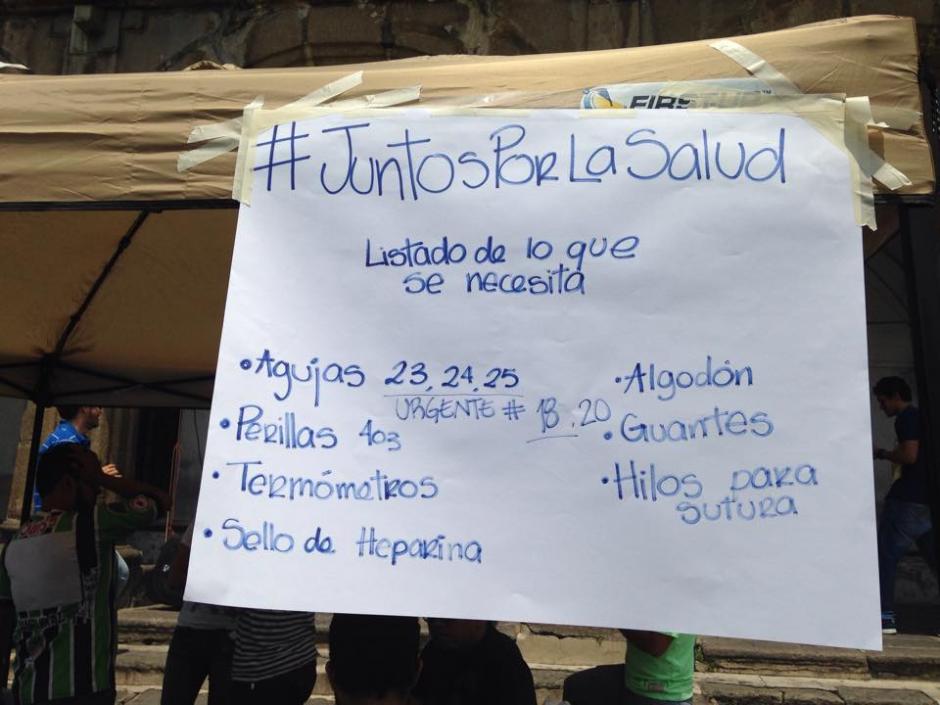 FIRST-UP
#JuntosPorLaSalud
Listado de lo que
se necesita
•Agujas 23, 24, 25
URGENTE # 18, 20
•Perillas 403
•Termómetros
•Sello de Heparina
•Algodón
•Guantes
•Hilos para
sutura